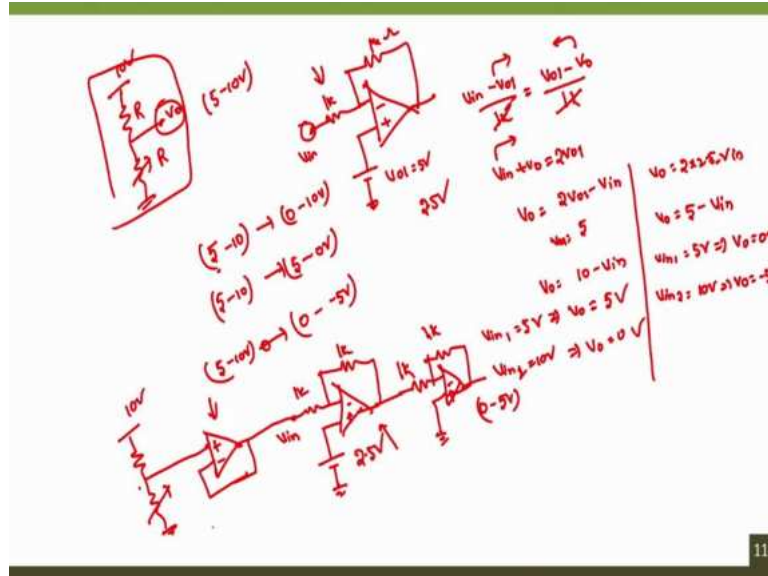 10V
R
Vo
(5-10V)
R
1k
1k Ω
Vin
Vo1 = 5V
2.5V
Vin - Vo1 / 1k = Vo1 - Vo / 1k
Vin + Vo = 2Vo1
Vo = 2Vo1 - Vin
5
Vo = 10 - Vin
Vin1 = 5V ⇒ Vo = 5V
Vin2 = 10V ⇒ Vo = 0 V
Vo = 2x2.5-Vin
Vo = 5 - Vin
Vin1 = 5V ⇒ Vo = 0
Vin2 = 10V ⇒ Vo = -5
(5-10) → (0-10V)
(5-10) → (5-0V)
(5-10V) → (0 - -5V)
10V
Vin
1k
1k
2.5V
1k
1k
(0-5V)
11